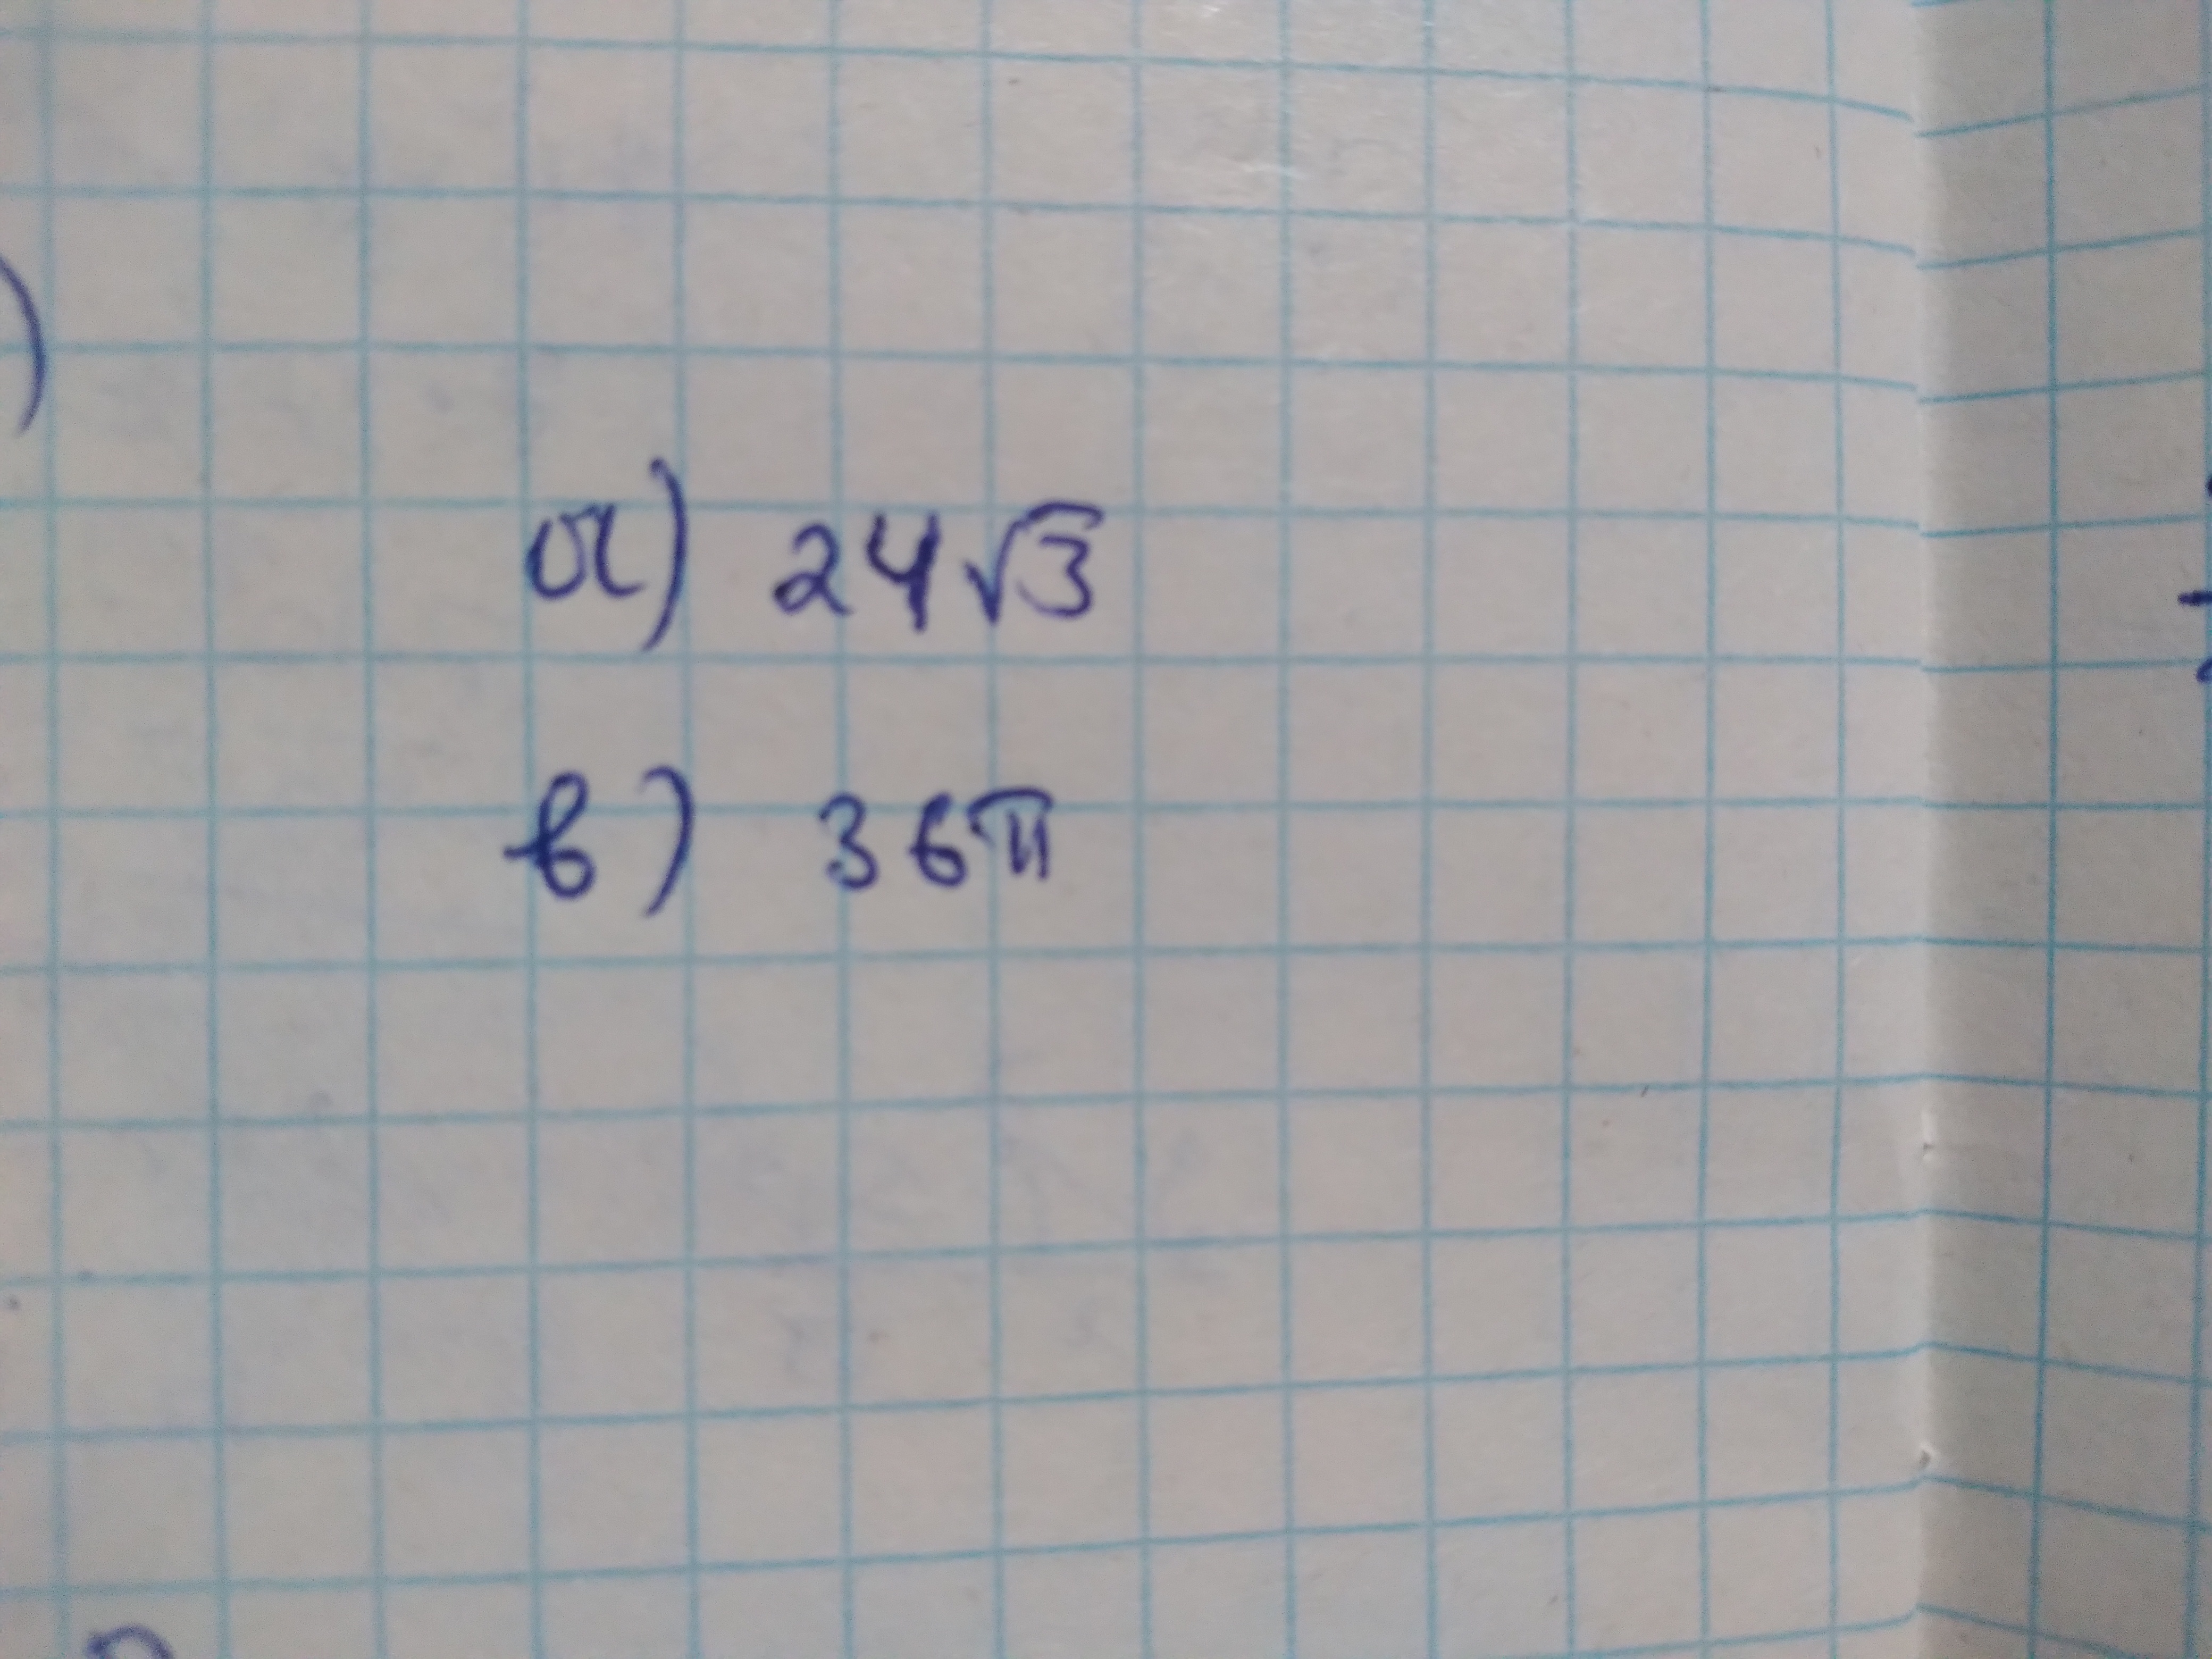 а) 24√3
в) 36π